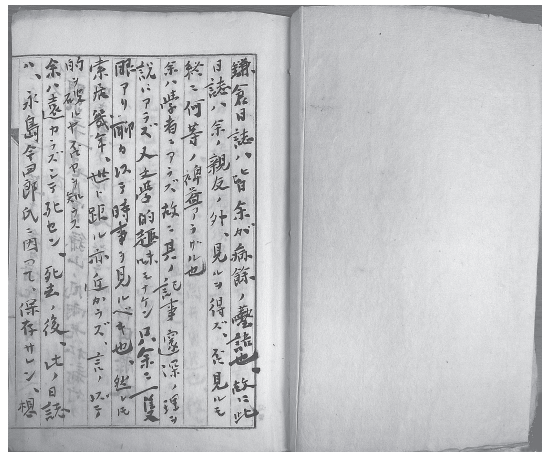 鎌倉日誌ハ、皆余が病餘ノ囈語也、故ニ此
日誌ハ余ノ親友ノ外、見ルヲ得ズ、否見ルモ
終ニ何等ノ裨益アラザル也
余ハ学者ニアラズ故ニ其ノ記事
説ニアラズ又文学的趣味モナケン只余ニ一隻
眼アリ、聊カ以テ時事ヲ見ルベキ也、然レトモ
索居幾年、世ヲ距ル亦近カラズ、言ノ以テ
的ヲ破ルヤ否ヤヲ知ラズ
余ハ遠カラズシテ死セン、死去ノ後、此ノ日誌
ハ、永島今四郎氏ニ因って、保存サレン、想